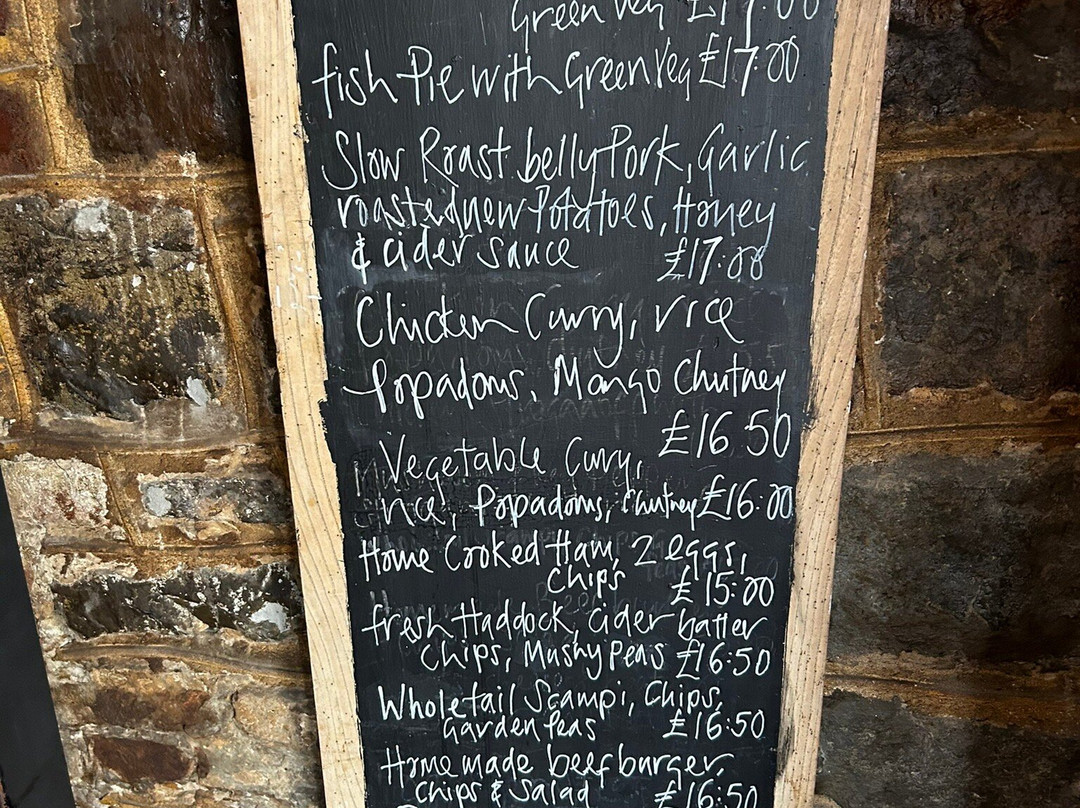 Green Veg £17.00
fish Pie with Green Veg £17.00
Slow Roast belly Pork, Garlic
roasted new Potatoes, Honey
& cider sauce £17:00
Chicken Curry, rice
Popadoms, Mango Chutney
£16 50
Vegetable Curry,
rice, Popadoms, Chutney £16:00
Home Cooked Ham, 2 eggs,
Chips £15:00
fresh Haddock, cider batter
Chips, Mushy Peas £16:50
Wholetail Scampi, Chips,
Garden Peas £16:50
Home made beef burger,
Chips & Salad £16:50